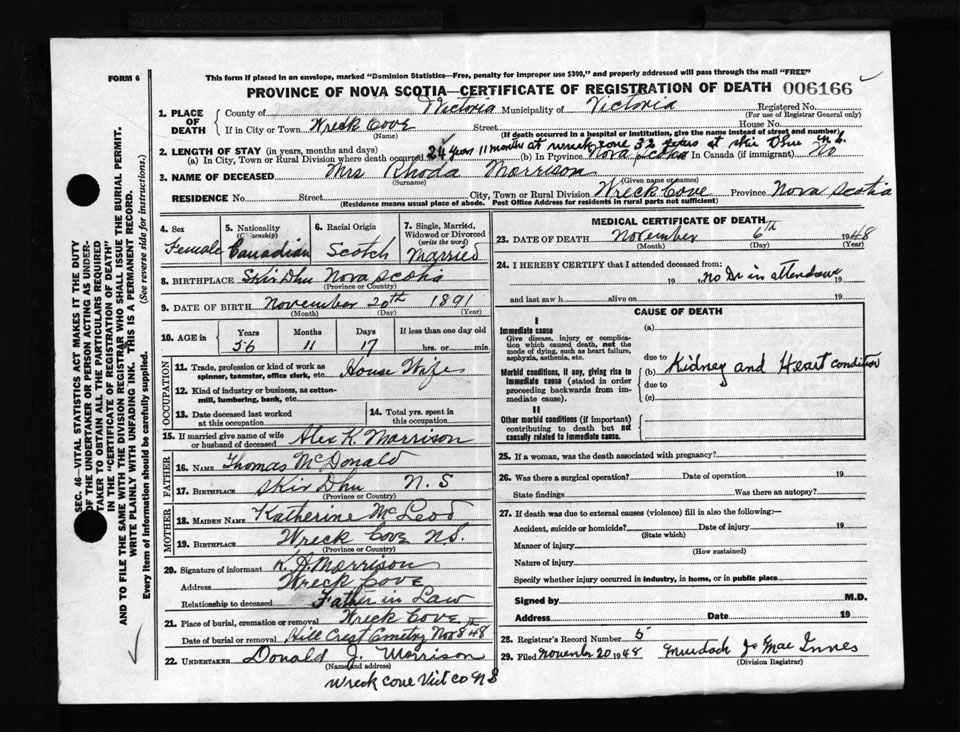 FORM 6
This form if placed in an envelope, marked "Dominion Statistics—Free, penalty for improper use $300," and properly addressed will pass through the mail "FREE"
PROVINCE OF NOVA SCOTIA—CERTIFICATE OF REGISTRATION OF DEATH 006166
1. PLACE OF DEATH
County of Victoria Municipality of Victoria Registered No.
(For use of Registrar General only)
If in City or Town Wreck Cove Street House No.
(Name) (If death occurred in a hospital or institution, give the name instead of street and number)
2. LENGTH OF STAY (in years, months and days) 24 years 11 months at wreck cove 32 years at skir Dhu
(a) In City, Town or Rural Division where death occurred (b) In Province Nova Scotia In Canada (if immigrant) No
3. NAME OF DECEASED Mrs Rhoda Morrison
(Surname) (Given name or names)
RESIDENCE No. Street City, Town or Rural Division Wreck Cove Province Nova Scotia
(Residence means usual place of abode. Post Office Address for residents in rural parts not sufficient)
4. Sex Female
5. Nationality (Citizenship) Canadian
6. Racial Origin Scotch
7. Single, Married, Widowed or Divorced (write the word) Married
8. BIRTHPLACE Skir Dhu Nova Scotia
(Province or Country)
9. DATE OF BIRTH November 20th 1891
(Month) (Day) (Year)
10. AGE in Years Months Days If less than one day old
56 11 17 hrs. or min.
OCCUPATION
11. Trade, profession or kind of work as spinner, teamster, office clerk, etc. House Wife
12. Kind of industry or business, as cotton-mill, lumbering, bank, etc.
13. Date deceased last worked at this occupation
14. Total yrs. spent in this occupation
15. If married give name of wife or husband of deceased Alex K. Morrison
FATHER
16. NAME Thomas McDonald
17. BIRTHPLACE Skir Dhu N.S
(Province or Country)
MOTHER
18. MAIDEN NAME Katherine McLeod
19. BIRTHPLACE Wreck Cove NS.
(Province or Country)
20. Signature of informant K. A. Morrison
Address Wreck Cove
Relationship to deceased Father in Law
21. Place of burial, cremation or removal Wreck Cove
Date of burial or removal Hill Crest Cemetry Nov 8th 48
22. UNDERTAKER Donald J. Morrison
(Name and address)
Wreck cove Vict co NS
MEDICAL CERTIFICATE OF DEATH
23. DATE OF DEATH November 6th 1948
(Month) (Day) (Year)
24. I HEREBY CERTIFY that I attended deceased from:
19 no Dr in attendance 19
and last saw h alive on 19
CAUSE OF DEATH
I
Immediate cause
Give disease, injury or complication which caused death, not the mode of dying, such as heart failure, asphyxia, asthenia, etc.
(a)
due to
Morbid conditions, if any, giving rise to immediate cause (stated in order proceeding backwards from immediate cause).
(b) Kidney and Heart condition
due to
(c)
II
Other morbid conditions (if important) contributing to death but not causally related to immediate cause.
25. If a woman, was the death associated with pregnancy?
26. Was there a surgical operation? Date of operation 19
State findings Was there an autopsy?
27. If death was due to external causes (violence) fill in also the following:—
Accident, suicide or homicide? Date of injury 19
(State which)
Manner of injury
(How sustained)
Nature of injury
Specify whether injury occurred in industry, in home, or in public place
Signed by M.D.
Address Date 19
28. Registrar's Record Number 5
29. Filed November 20 1948 Murdock J. MacInnes
(Division Registrar)
SEC. 46—VITAL STATISTICS ACT MAKES IT THE DUTY
OF THE UNDERTAKER OR PERSON ACTING AS UNDERTAKER TO OBTAIN ALL THE PARTICULARS REQUIRED
IN THE "CERTIFICATE OF REGISTRATION OF DEATH"
AND TO FILE THE SAME WITH THE DIVISION REGISTRAR WHO SHALL ISSUE THE BURIAL PERMIT.
WRITE PLAINLY WITH UNFADING INK. THIS IS A PERMANENT RECORD.
Every item of information should be carefully supplied. (See reverse side for instructions.)